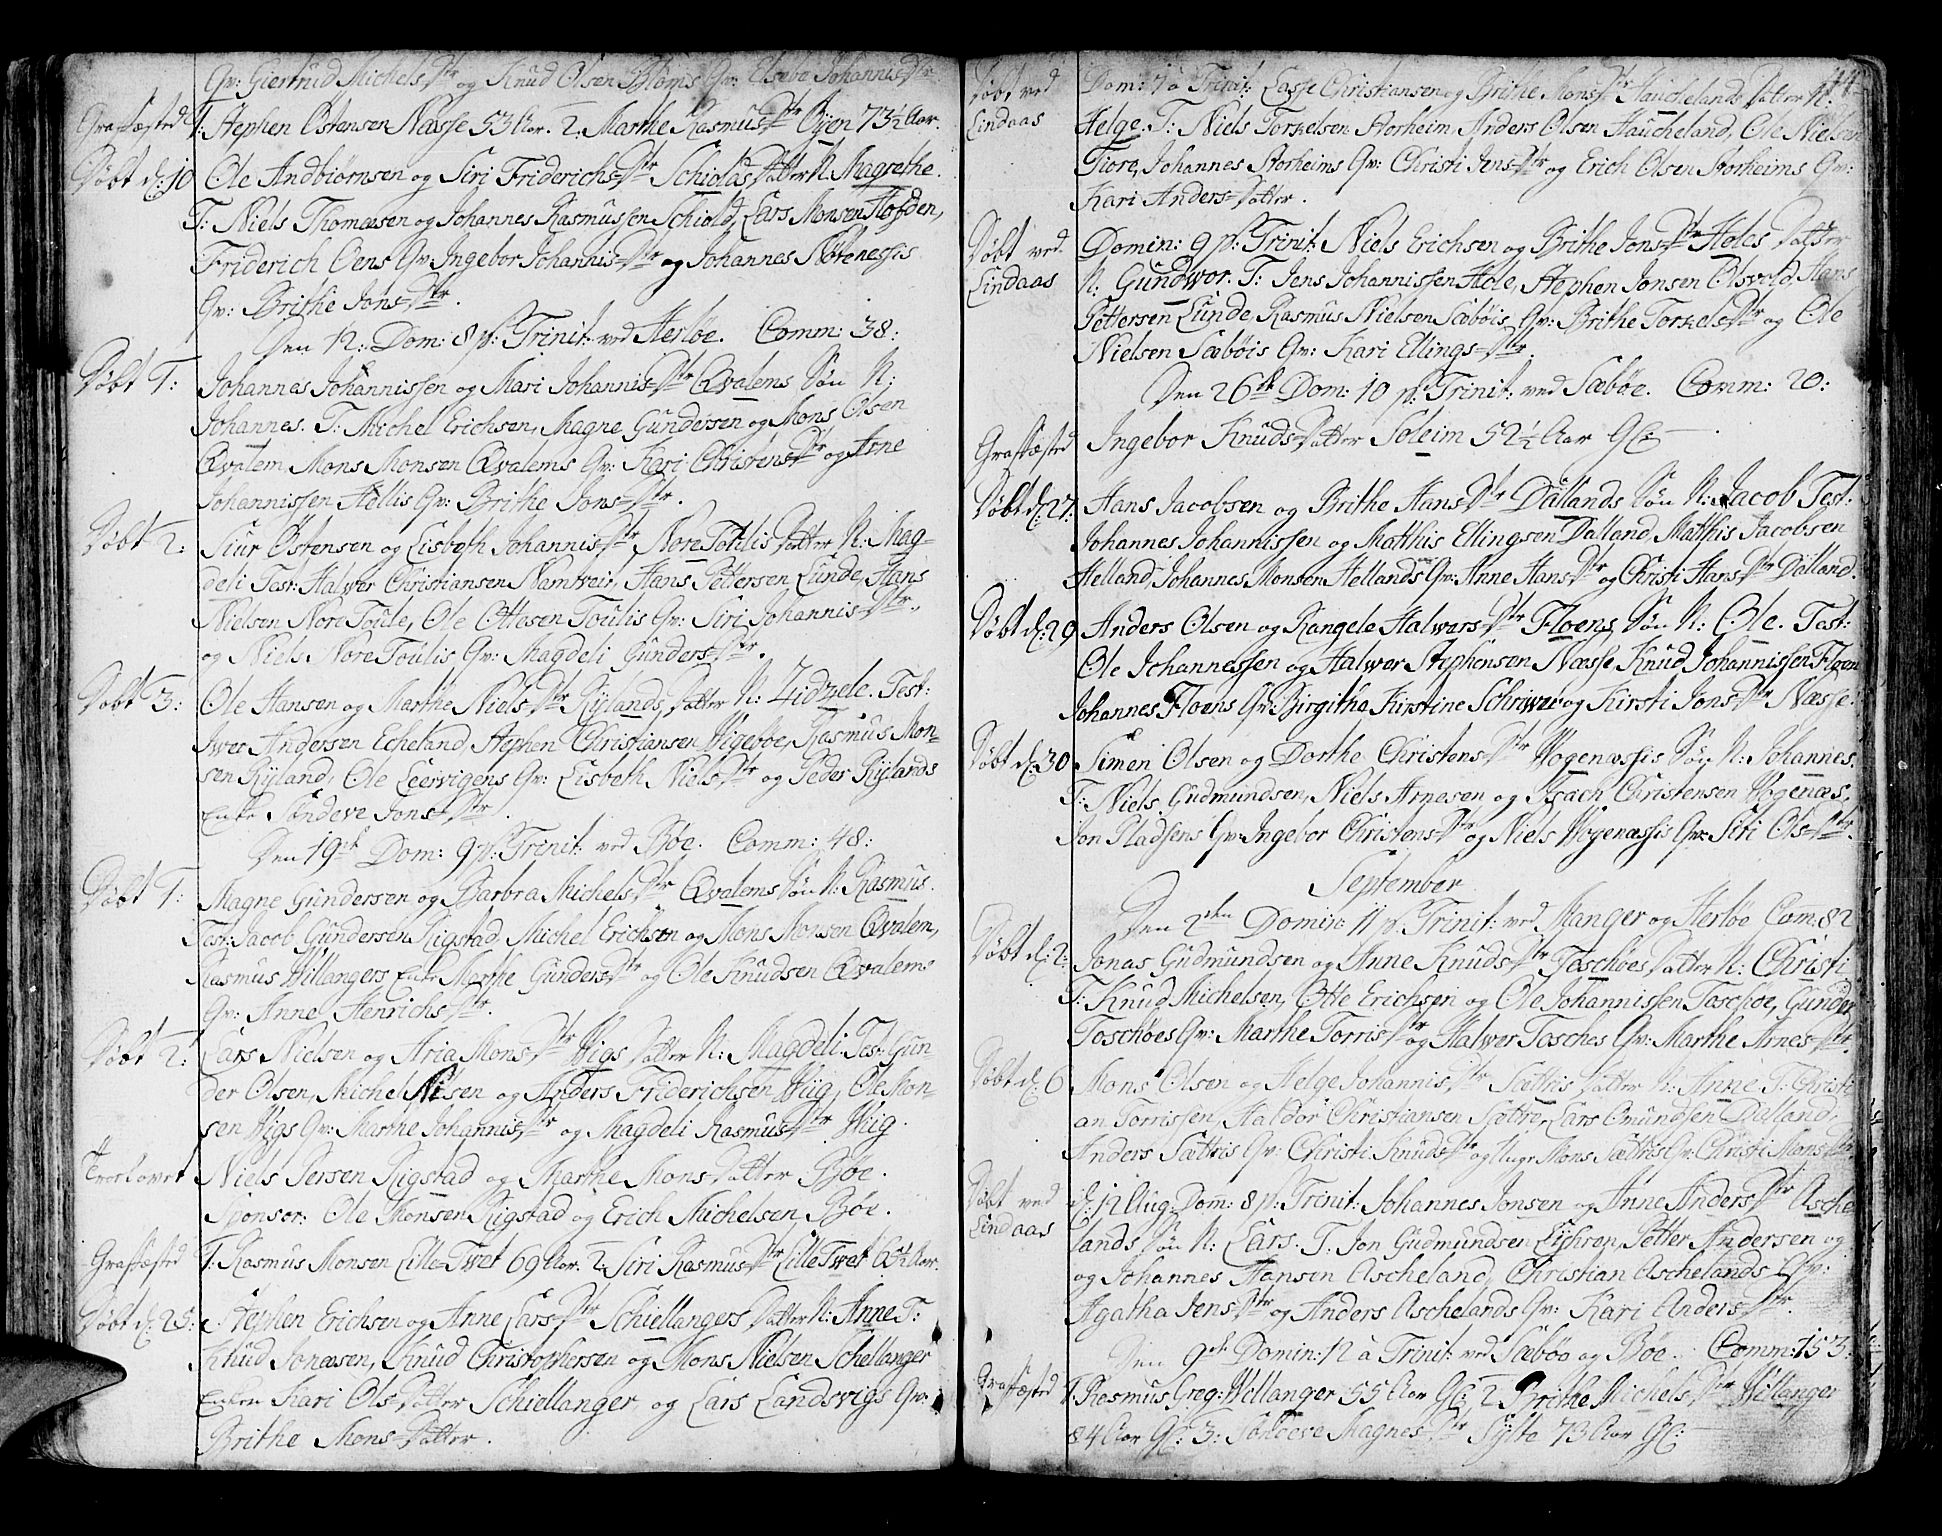 Qv: Giertrud Michels Dtr og Knud Olsen Bloms Qv: Elsebe Johannis Dtr
Graffæsted 1. Stephen Østensen Næsse 53 Aar. 2, Marthe Rasmus Dtr Øyen 73½ Aar.
Døbt d: 10 Ole Andbiørnsen og Siri Friderichs Dtr Schiolds Datter N: Magrethe.
T: Niels Thomæsen og Johannes Rasmussen Schiold, Lars Monsen Hofden,
Friderich Øens Qv: Ingebor Johannis Dtr og Johannes Nøtenessis
Qv: Brithe Jons Dtr.
Den 12: Dom: 8 p: Trinit: ved Herløe. Comm: 38:
Døbt 1: Johannes Johannissen og Mari Johannis Dtr Qvalems Søn N:
Johannes. T: Michel Erichsen, Magne Gundersen og Mons Olsen
Qvalem, Mons Monsen Qvalems Qv: Kari Christens Dtr og Arne
Johannissen Hellis Qv: Brithe Jons Dtr.
Døbt 2: Siur Østensen og Lisbeth Johannis Dtr Nore Toulis Datter N: Mag-
deli Test: Halwer Christiansen Namtveit, Hans Pettersen Lunde, Hans
Nielsen Nore Toule, Ole Ottesen Toulis Qv: Siri Johannis Dtr,
og Niels Nore Toulis Qv: Magdeli Gunders Dtr.
Døbt 3: Ole Hansen og Marthe Niels Dtr Rylands Datter N: Zidzele. Test:
Iver Andersen Echeland, Stephen Christiansen Wigebøe, Rasmus Mon-
sen Ryland, Ole Leervigens Qv: Lisbeth Niels Dtr og Peder Rylands
Enke Søndeve Jons Dtr.
Den 19de Dom: 9 p: Trinit: ved Bøe. Comm: 48:
Døbt 1: Magne Gundersen og Barbra Michels Dtr Qvalems Søn N: Rasmus.
Test: Jacob Gundersen Rigstad, Michel Erichsen og Mons Monsen Qvalem,
Rasmus Willangers Enke Marthe Gunders Dtr og Ole Knudsen Qvalems
Qv: Anne Henrichs Dtr.
Døbt 2: Lars Nielsen og Aria Mons Dtr Wigs Datter N: Magdeli. Test: Gun-
der Olsen, Michel Nilsen og Anders Friderichsen Wiig, Ole Mon-
sen Wigs Qv: Marthe Johannis Dtr og Magdeli Rasmus Dtr Wiig.
Troelovet Niels Persen Rigstad og Marthe Mons Datter Bøe.
Sponsor: Ole Monsen Rigstad og Erich Michelsen Bøe.
Graffæsted 1. Rasmus Monsen Lille Twet 69 Aar. 2: Siri Rasmus Dtr Lille Twet Aar.
Døbt d: 25: Stephen Erichsen og Anne Lars Dtr Schiellangers Datter N: Anne T:
Knud Jonæsen, Knud Christophersen og Mons Nielsen Schellanger
Enken Kari Ols Datter Schiellanger og Lars Landsvigs Qv:
Brithe Mons Datter.
Døbt ved Dom: 7 a Trinit: Lasse Christiansen og Brithe Mons Dtr Hauchelands Datter N:
Lindaas Helge. T: Niels Torkelsen Storheim, Anders Olsen Haucheland, Ole Nielsen
Fiore, Johannes Storheims Qv: Christi Jens Dtr og Erich Olsen Storheims Qv:
Kari Anders Datter.
Døbt ved Domin: 9 p: Trinit: Niels Erichsen og Brithe Jons Dtr Holes Datter
Lindaas N: Gundwor. T: Jens Johannissen Hole, Stephen Jonsen Olsvold, Hans
Pettersen Lunde, Rasmus Nielsen Sæbøis Qv: Brithe Torkels Dtr og Ole
Nielsen Sæbøis Qv: Kari Ellings Dtr.
Den 26de Dom: 10 p: Trinit: ved Sæbøe. Comm: 20:
Graffæsted Ingebor Knuds Datter Soleim 52¼ Aar G:
Døbt d: 27: Hans Jacobsen og Brithe Hans Dtr Dallands Søn N: Jacob Test:
Johannes Johannissen og Matthis Ellingsen Dalland, Matthis Jacobsen
Helland, Johannes Monsen Hellands Qv: Anne Hans Dtr og Christi Hans Dtr Dalland.
Døbt d: 29 Anders Olsen og Rangele Halwors Dtr Floens Søn N: Ole. Test:
Ole Johannessen og Halwer Stephensen Næsse, Knud Johannissen Floen
Johannes Floens Qv: Birgitha Kirstine Schriwer og Kirsti Jons Dtr Næsse.
Døbt d: 30 Simen Olsen og Dorthe Christens Dtr Wogenæssis Søn N: Johannes.
T: Niels Gudmundsen, Niels Arnesen og Isach Christensen Wogenæs,
Jon Pladsens Qv: Ingebor Christens Dtr og Niels Wogenæssis Qv: Siri Ols Dtr.
September
Den 2den Domin: 11 p: Trinit: ved Manger og Herløe Com: 82
Døbt d: 2: Jonas Gudmundsen og Anne Knuds Dtr Toschøes Datter N: Christi
T: Knud Michelsen, Otte Erichsen og Ole Johannissen Toschøe, Gunder
Toschøes Qv: Marthe Torris Dtr og Halwer Tosches Qv: Marthe Arnes Dtr.
Døbt d: 6 Mons Olsen og Helge Johannis Dtr Sættris Datter N: Anne T: Christi-
an Torrissen, Haldor Christiansen Sættre, Lars Omundsen Dalland,
Anders Sættris Qv: Christi Knuds Dtr og Unge Mons Sættris Qv: Christi Mons Dtr
Døbt ved d: 12 Aug: Dom: 8 p: Trinit: Johannes Jonsen og Anne Anders Dtr Asche-
Lindaas lands Søn N: Lars. T. Jon Gudmundsen Lyhren, Petter Andersen og
og Johannes Hansen Ascheland, Christian Aschelands Qv:
Agatha Jens Dtr og Anders Aschelands Qv: Kari Anders Dtr.
Den 9de Domin: 12 a Trinit: ved Sæbøe og Bøe. Comm: 153:
Graffæsted 1. Rasmus Greg: Willanger 55 Aar G: 2 Brithe Michels Dtr Willanger
84 Aar G: 3: Søndeve Magnes Dtr Sylte 73 Aar G: